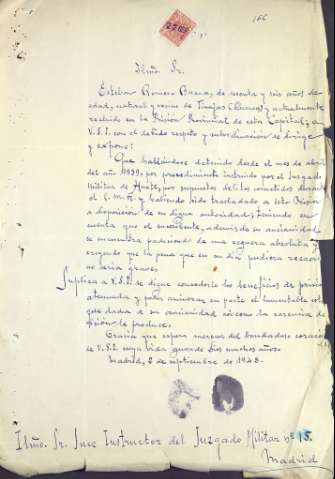 166
Ilmo. Sr.
Esteban Romero Baeza, de sesenta y seis años de
edad, natural y vecino de Tinajas (Cuenca), y actualmente
recluido en la Prisión Provincial de esta Capital, a
V.S.I. con el debido respeto y subordinación se dirige
y expone:
Que hallándose detenido desde el mes de abril
del año 1939, por procedimiento instruido por el Juzgado
Militar de Huete, por supuestos delitos cometidos durante
el G.M.N. y habiendo sido trasladado a esta Prisión
a disposición de su digna autoridad; teniendo en
cuenta que el suscribiente, además de su ancianidad
se encuentra padeciendo de una ceguera absoluta y
creyendo que la pena que en su día pudiera recaer
no sería grave.
Suplica a V.S.I. se digne concederle los beneficios de prisión
atenuada y poder aminorar en parte el lamentable estado
que dada a su ancianidad así como la carencia de
visión le produce.
Gracia que espera merecer del bondadoso corazón
de V.S.I. cuya vida guarde Dios muchos años.
Madrid, 2 de septiembre de 1943.
Ilmo. Sr. Juez Instructor del Juzgado Militar nº 15.
Madrid